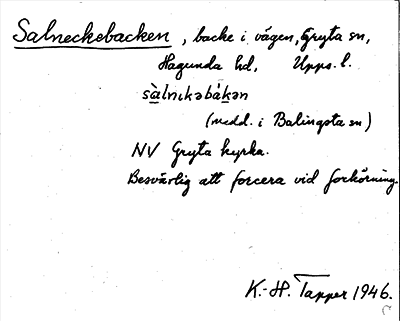 Salneckebacken, backe i vägen, Gryta sn,
Hagunda hd, Upps. l.
sàlnıkəbákən
(medd. i Balingsta sn)
NV Gryta kyrka.
Besvärlig att forcera vid forkörning.
K.-H. Tapper 1946.